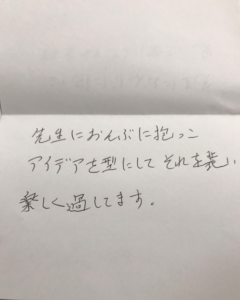 先生におんぶに抱っこ
アイデアを型にして それを
楽しく過してます。